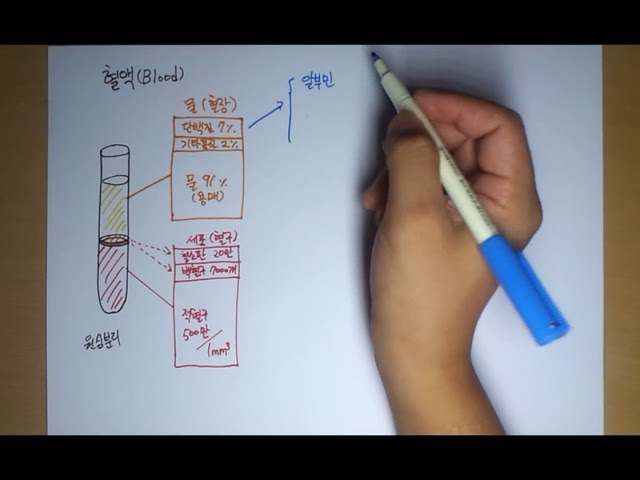 혈액 (Blood)
물 (혈장)
단백질 7%
기타물질 2%
물 91%
(용매)
알부민
세포 (혈구)
혈소판 20만
백혈구 7000개
적혈구
500만
/1mm³
원심분리